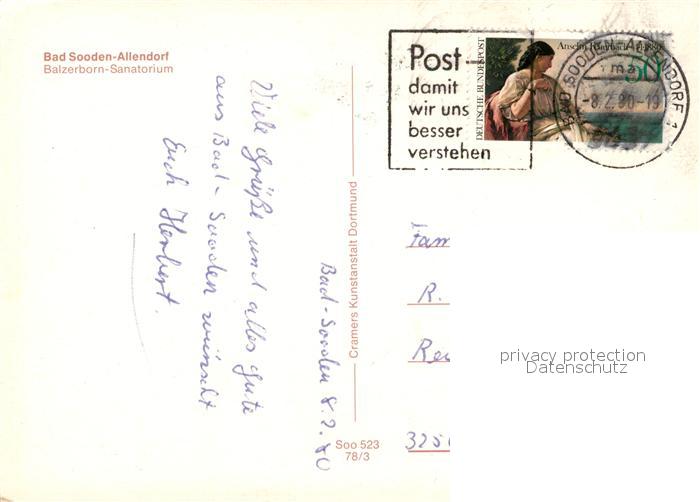 Bad Sooden-Allendorf
Balzerborn-Sanatorium
Post-
damit
wir uns
besser
verstehen
DEUTSCHE BUNDESPOST
Anselm Feuerbach
50
BAD SOODEN-ALLENDORF 1
-8.2.80-19
Bad-Sooden 8.2.80
Viele Grüße und alles gute
aus Bad-Sooden wünscht
Euch Herbert.
Cramers Kunstanstalt Dortmund
Soo 523
78/3
Fam
R.
325
privacy protection
Datenschutz